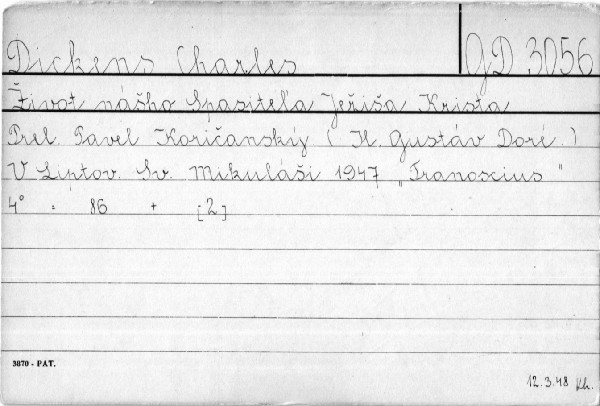 Dickens Charles
GD 3056
Život nášho Spasiteľa Ježiša Krista
Prel. Pavel Koričanský ( Il. Gustáv Doré. )
V Liptov. Sv. Mikuláši 1947 „Tranoscius"
4° : 86 + [2]
3870 - PAT.
12.3.48 Kh.